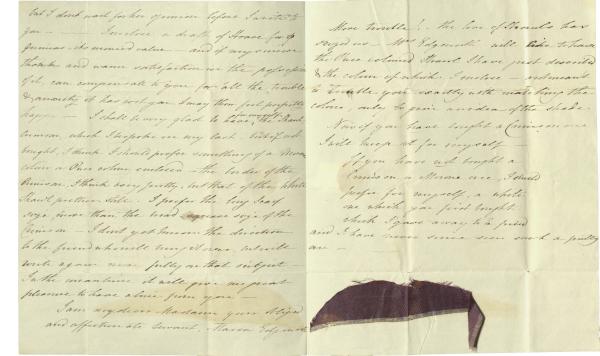 but I don't wait for her opinion before I write to
you — I enclose a draft of Horace for
guineas – its second value – and if my sincere
thanks and warm satisfaction in the possession
of it can compensate to you for all the trouble
& anxiety it has cost you I may then feel perfectly
happy – I shall be very glad to have the Shawl
Crimson, which I spoke in my last but if not
bought, I think I should prefer something of a
colour a Puce colour enclosed – the border of the
Crimson, I think very pretty, but that of the white
Shawl prettier still. I prefer the long Scarf
size, more than the size of the
Crimson – I don't yet know the direction
to the friend who will but will
write again more fully on that subject –
In the meantime it will give me great
pleasure to have a line from you —
I am my dear Madam your obliged
and affectionate Servant, Maria Edgeworth
More trouble! – the love of Shawls has
seized us – Mrs Edgeworth will like to have
the Puce coloured Shawl I have just described
& the colour of which I enclose – not meant
to trouble you exactly with matching the
colour, only to give an idea of the shade.
Now if you have bought a Crimson one
I will keep it for myself –
If you have not bought a
Crimson a one, I should
prefer for myself, a white
one which you first bought
which I gave away to a friend
and I have never since seen such a pretty
one —